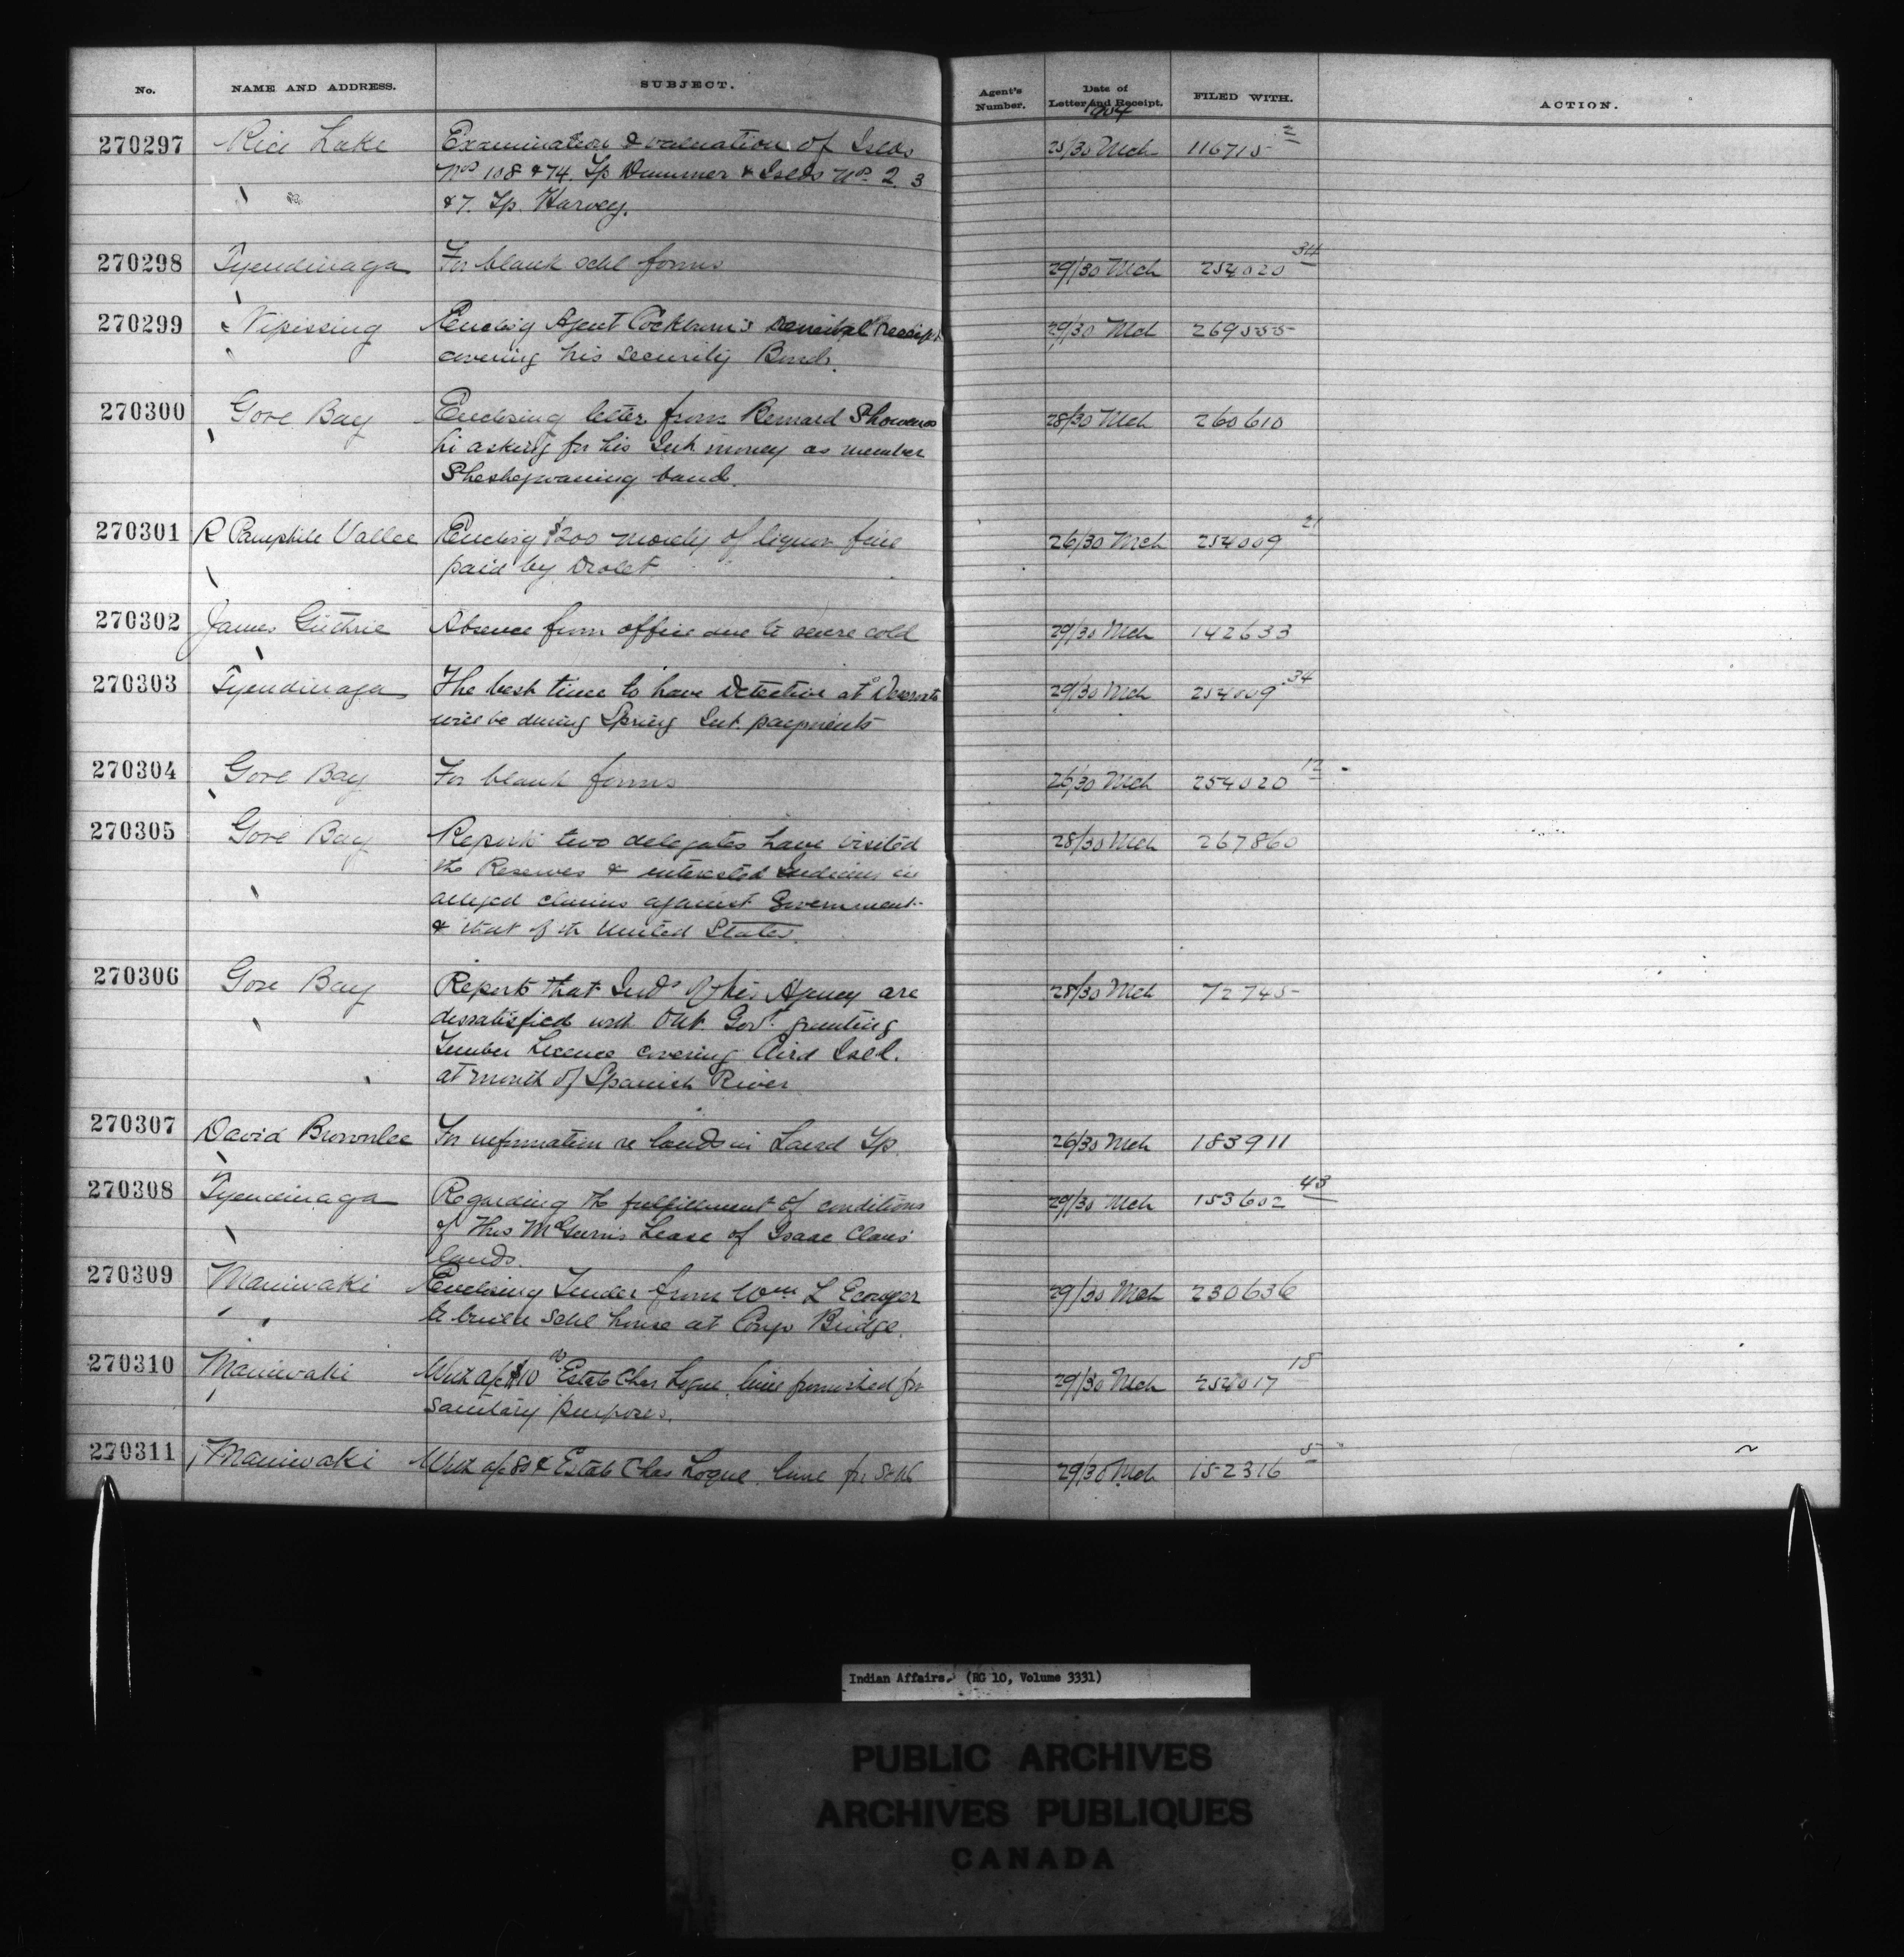 No. NAME AND ADDRESS. SUBJECT. Agent's Number. Date of Letter and Receipt. FILED WITH. ACTION.
1904
270297 Rice Lake Examination & valuation of Islds 25/30 Mch 116715 2
Nos 108 & 74. Tp Dummer & Islds Nos. 2, 3
" " & 7. Tp. Harvey.
270298 Tyendinaga For blank schl forms 29/30 Mch 254020 34
270299 Nipissing Enclosg Agent Cockburn's Receipt 29/30 Mch 269555
covering his security Bond.
270300 Gore Bay Enclosing letter from Bernard 28/30 Mch 260610
asking for his Int money as member
Sheshegwaning band.
270301 R Pamphile Vallee Enclosg $200 moiety of liquor fine 26/30 Mch 254009 21
paid by Drolet
270302 James Guthrie Absence from office due to severe cold 29/30 Mch 142633
270303 Tyendinaga The best time to have Detective at Deseronto 29/30 Mch 254009 34
will be during Spring Int. payments
270304 Gore Bay For blank forms 26/30 Mch 254020 12
270305 Gore Bay Reports two delegates have visited 28/30 Mch 267860
the Reserves & interested Indians in
alleged claims against Government
& that of the United States.
270306 Gore Bay Reports that Inds of his Agency are 28/30 Mch 72745
dissatisfied with Ont. Govt. granting
Timber Licence covering Aird Isld.
at mouth of Spanish River
270307 David Brownlee For information re lands in Laird Tp. 26/30 Mch 183911
270308 Tyendinaga Regarding the fulfillment of conditions 29/30 Mch 153602 43
of Thos McGurn's Lease of Isaac Claus'
lands.
270309 Maniwaki Enclosing Tender from Wm L 29/30 Mch 230636
to build Schl house at Congo Bridge.
270310 Maniwaki With a/c $10 Estate Chas Logue, lime furnished for 29/30 Mch 254017 18
Sanitary purposes.
270311 Maniwaki With a/c 80¢ Estate Chas Logue, lime for Schl 29/30 Mch 152316 5
Indian Affairs. (RG 10, Volume 3331)
PUBLIC ARCHIVES
ARCHIVES PUBLIQUES
CANADA